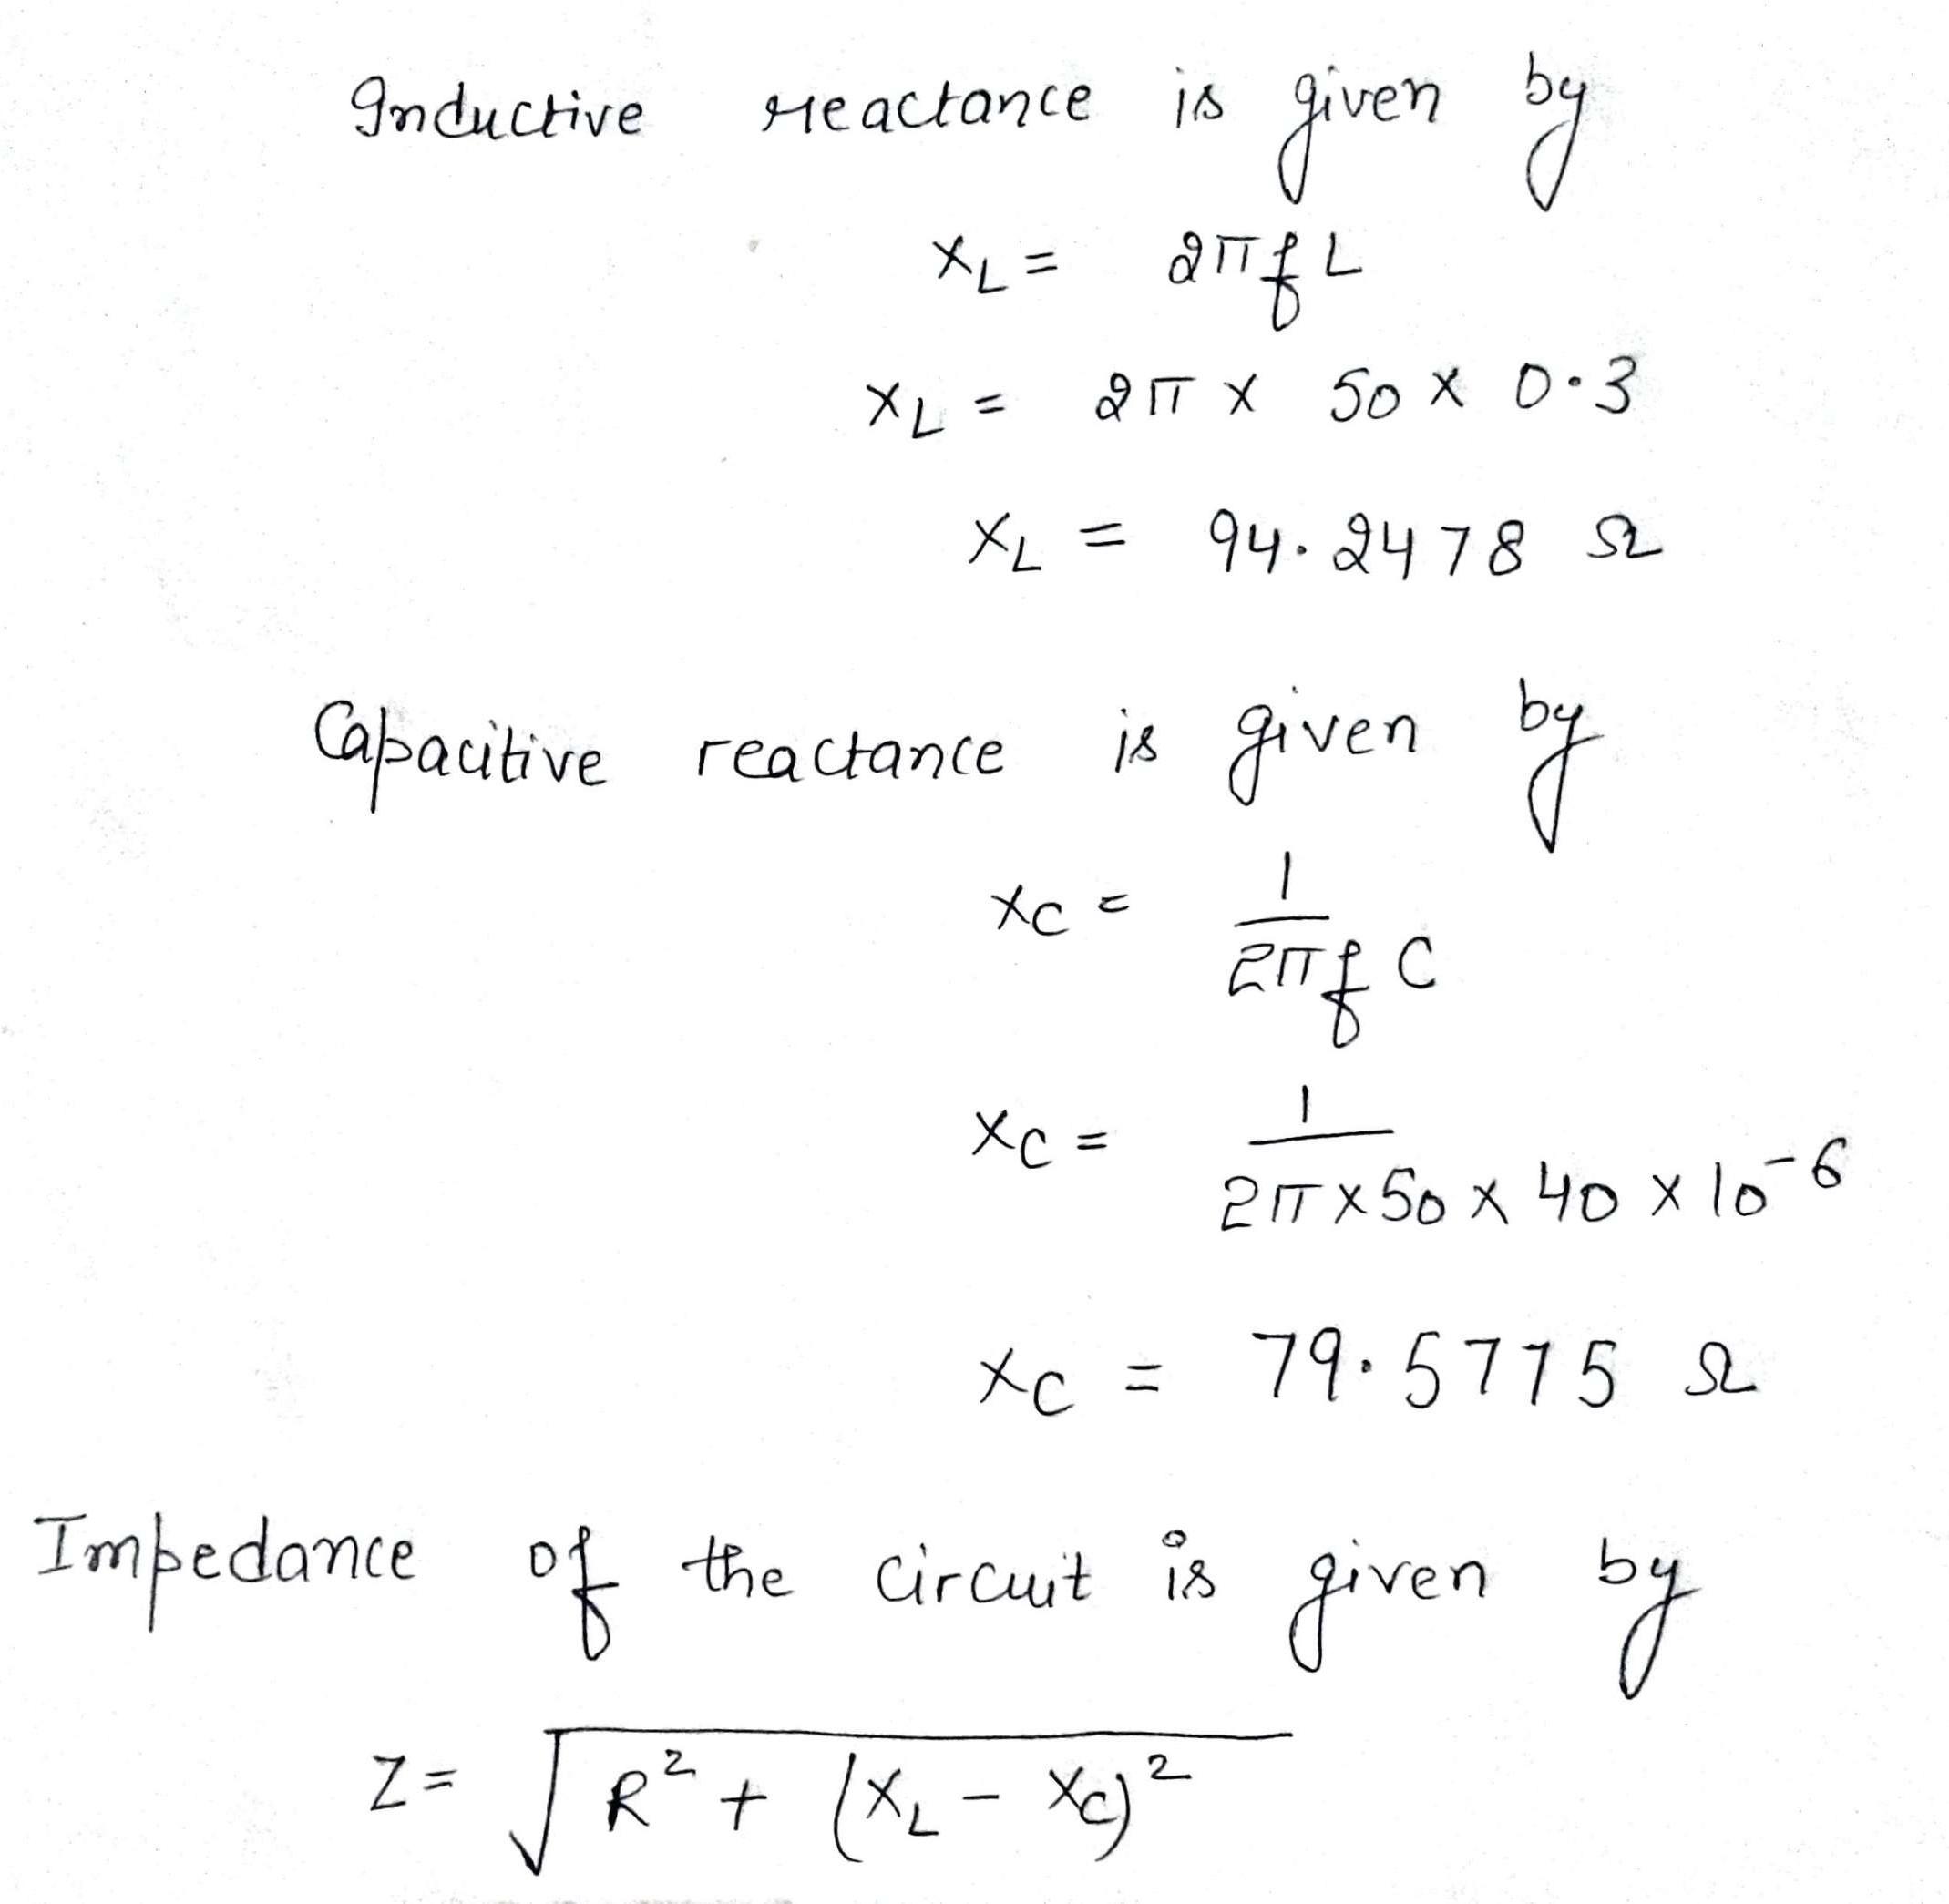 Inductive reactance is given by
X_L = 2πfL
X_L = 2π × 50 × 0.3
X_L = 94.2478 Ω
Capacitive reactance is given by
X_C = 1/(2πfC)
X_C = 1/(2π×50×40×10^-6)
X_C = 79.5775 Ω
Impedance of the circuit is given by
Z = √(R² + (X_L − X_C)²)